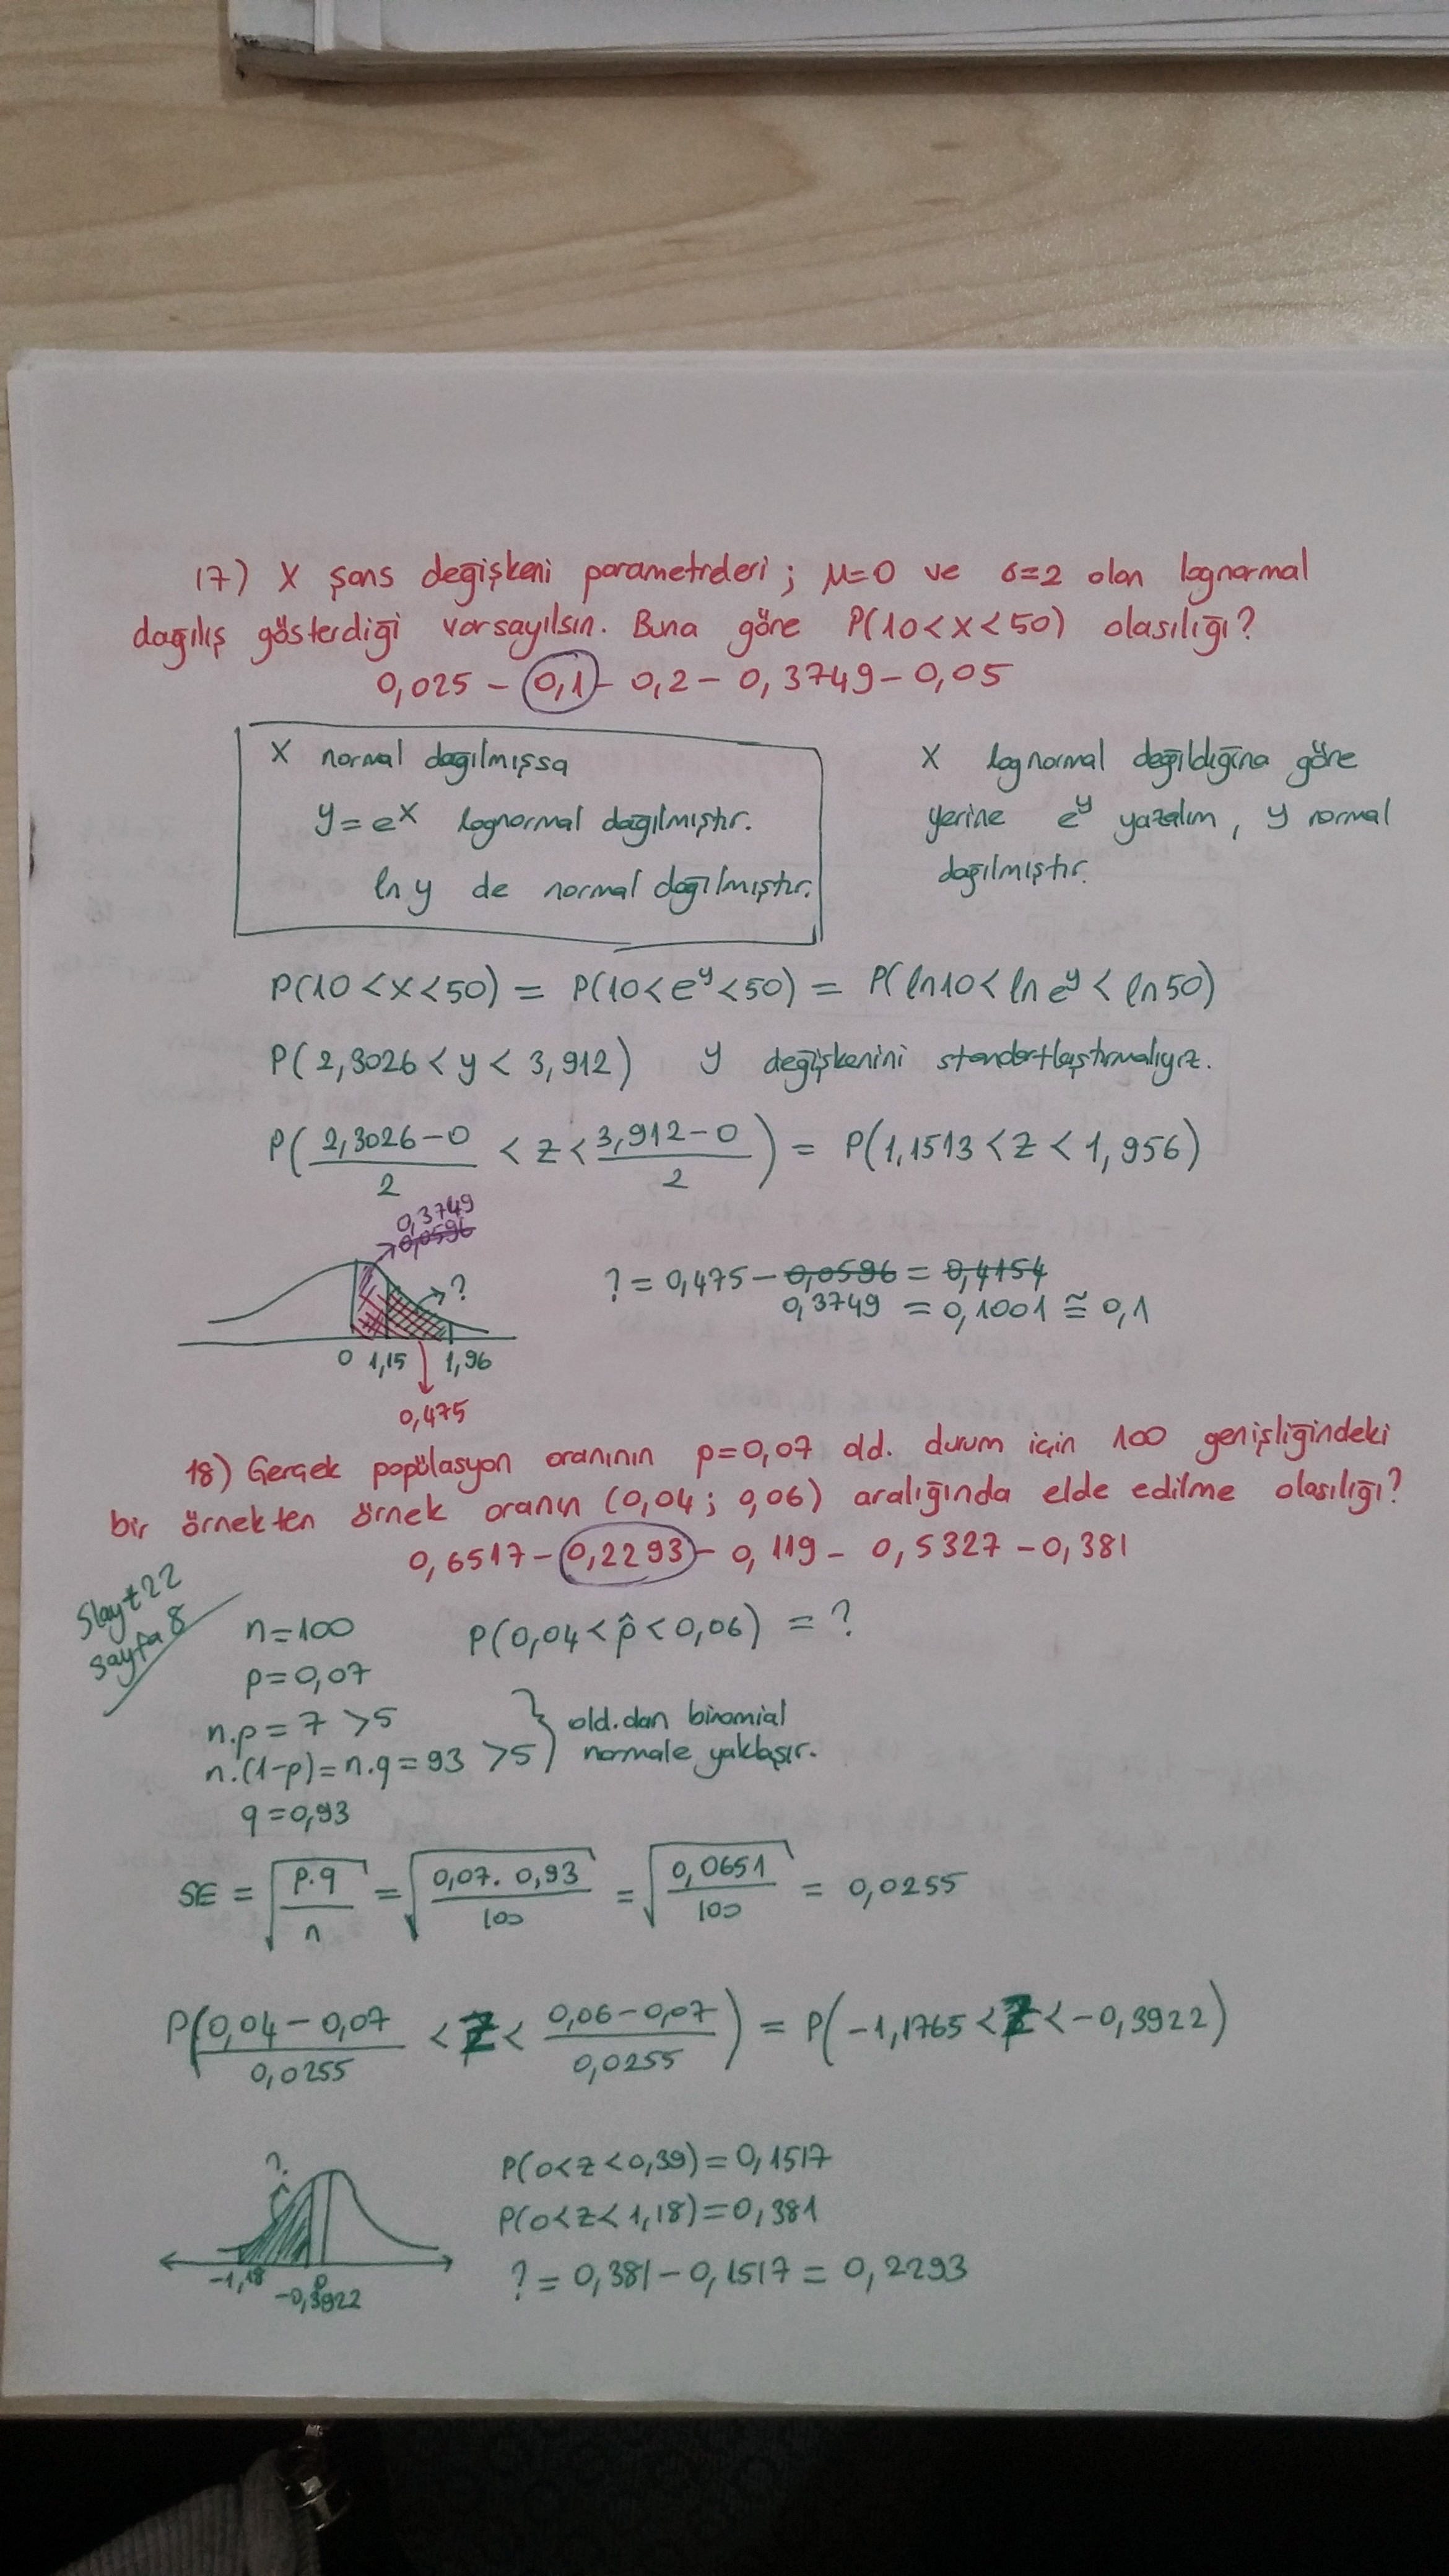 17) X şans değişkeni parametreleri; μ=0 ve σ=2 olan lognormal
dağılış gösterdiği varsayılsın. Buna göre P(10<x<50) olasılığı?
0,025 - 0,1 - 0,2 - 0,3749 - 0,05
X normal dağılmışsa
y=eˣ lognormal dağılmıştır.
ln y de normal dağılmıştır.
X lognormal değildiğine göre
yerine eʸ yazalım, y normal
dağılmıştır.
P(10<x<50) = P(10<eʸ<50) = P(ln10<ln eʸ<ln50)
P(2,3026<y<3,912) y değişkenini standartlaştırmalıyız.
P((2,3026-0)/2 < z < (3,912-0)/2) = P(1,1513<z<1,956)
0,3749
0,0596
?
? = 0,475 - 0,0596 = 0,4154
0,3749 = 0,1001 ≅ 0,1
0 1,15 1,96
0,475
18) Gerçek popülasyon oranının p=0,07 old. durum için 100 genişliğindeki
bir örnekten örnek oranın (0,04; 0,06) aralığında elde edilme olasılığı?
0,6517 - 0,2293 - 0,119 - 0,5327 - 0,381
Slayt 22
sayfa 8
n=100 P(0,04<p̂<0,06) = ?
p=0,07
n.p=7 >5
n.(1-p)=n.q=93 >5
} old.dan binomial
normale yaklaşır.
q=0,93
SE = √(p.q/n) = √(0,07.0,93/100) = √(0,0651/100) = 0,0255
P((0,04-0,07)/0,0255 < Z < (0,06-0,07)/0,0255) = P(-1,1765<Z<-0,3922)
?
-1,18 0
-0,3922
P(0<z<0,39)=0,1517
P(0<z<1,18)=0,381
? = 0,381-0,1517=0,2293